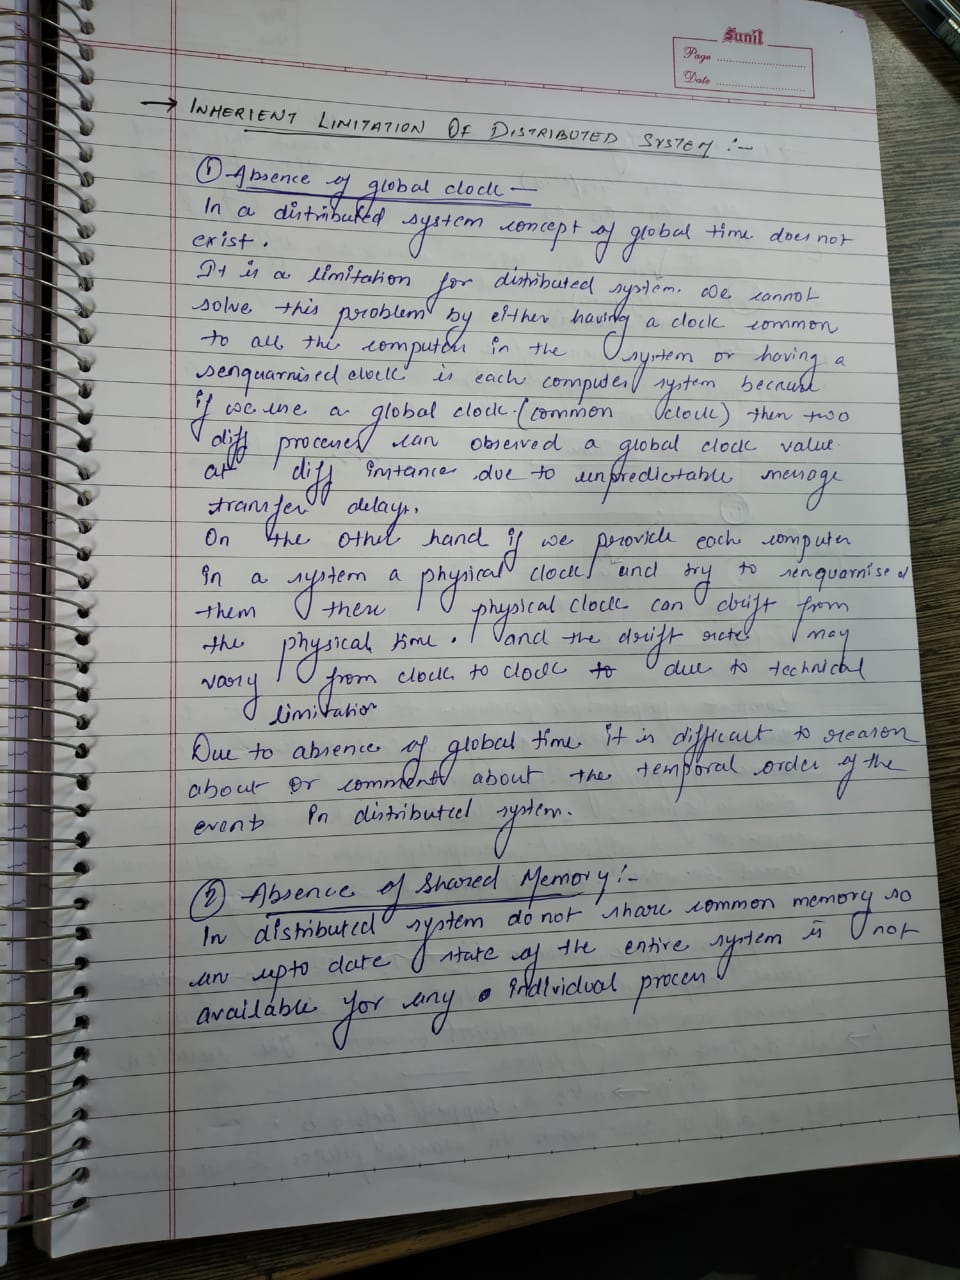 Sunil
Page
Date
→ INHERIENT LIMITATION OF DISTRIBUTED SYSTEM :-
① Absence of global clock —
In a distributed system concept of global time does not
exist.
It is a limitation for distributed system. We cannot
solve this problem by either having a clock common
to all the computer in the system or having a
senquarnised clock is each computer system because
if we use a global clock (common clock) then two
diff processes can observed a global clock value
at diff instance due to unpredictable message
transfer delays.
On the other hand if we provide each computer
in a system a physical clock and try to senquarnised
them these physical clock can drift from
the physical time. and the drift rate may
vary from clock to clock to due to technical
limitation
Due to absence of global time it is difficult to reason
about or comments about the temporal order of the
events in distributed system.
② Absence of Shared Memory :-
In distributed system do not share common memory so
an upto date state of the entire system is not
available for any individual process